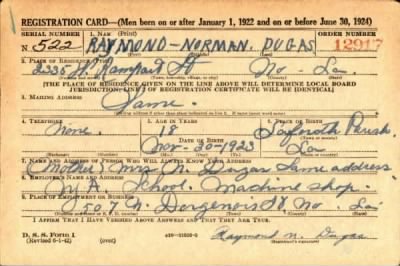 REGISTRATION CARD—(Men born on or after January 1, 1922 and on or before June 30, 1924)
SERIAL NUMBER
1. NAME (Print)
ORDER NUMBER
N 522
RAYMOND-NORMAN. DUGAS
12917
(First) (Middle) (Last)
2. PLACE OF RESIDENCE (Print)
2335 N. Rampart St No. La.
(Number and street) (Town, township, village, or city) (County) (State)
[THE PLACE OF RESIDENCE GIVEN ON THE LINE ABOVE WILL DETERMINE LOCAL BOARD
JURISDICTION; LINE 2 OF REGISTRATION CERTIFICATE WILL BE IDENTICAL]
3. MAILING ADDRESS
Same.
4. TELEPHONE
5. AGE IN YEARS
6. PLACE OF BIRTH
None.
18
Parish
DATE OF BIRTH
Nov-30-1923
La.
7. NAME AND ADDRESS OF PERSON WHO WILL ALWAYS KNOW YOUR ADDRESS
(Mother) Mrs. N. Dugas Same address
8. EMPLOYER'S NAME AND ADDRESS
N.Y.A. School. Machine shop.
9. PLACE OF EMPLOYMENT OR BUSINESS
507 N. Dorgenois St No. La.
I AFFIRM THAT I HAVE VERIFIED ABOVE ANSWERS AND THAT THEY ARE TRUE.
D. S. S. Form 1
(Revised 6-1-42) (over)
Raymond N. Dugas